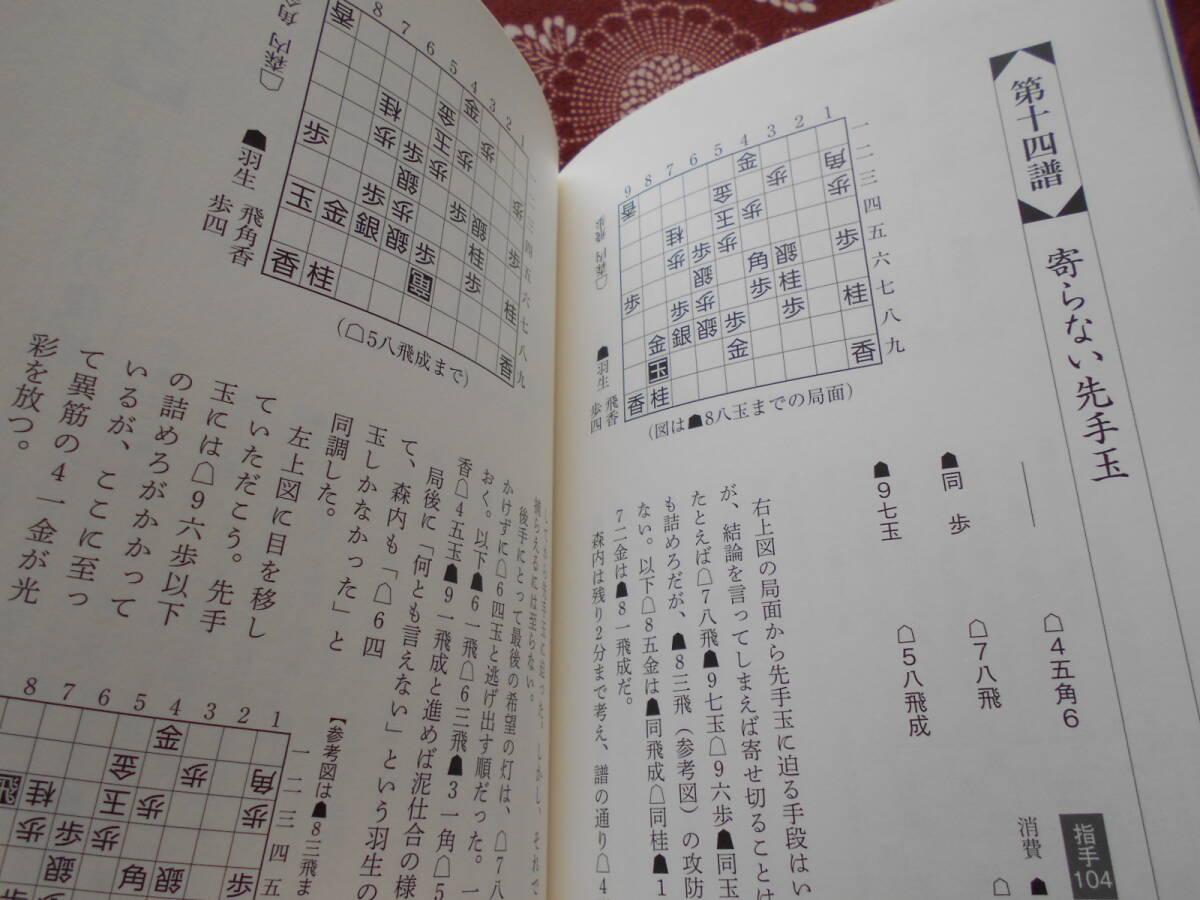 第十四譜
寄らない先手玉
指手104
消費
☖4五角6
☗同　歩
☖7八飛
☗9七玉
☖5八飛成
9 8 7 6 5 4 3 2 1
一二三四五六七八九
☗羽生　飛香
歩四
(図は☗8八玉までの局面)
右上図の局面から先手玉に迫る手段はい
が、結論を言ってしまえば寄せ切ることは
たとえば☖7八飛☗9七玉☖9六歩☗同玉
も詰めろだが、☗8三飛(参考図)の攻防
ない。以下☖8五金は☗同飛成☖同桂☗1
7二金は☗8一飛成だ。
森内は残り2分まで考え、譜の通り☖4
捕らえるには至らない。
後手にとって最後の希望の灯は、☖7八
かけずに☖6四玉と逃げ出す順だった。一
おく。以下☗6一飛☖6三飛☗3一角☖5
香☖4五玉☗9一飛成と進めば泥仕合の様
局後に「何とも言えない」という羽生の
て、森内も「☖6四
玉しかなかった」と
同調した。
左上図に目を移し
ていただこう。先手
玉には☖9六歩以下
の詰めろがかかって
いるが、ここに至っ
て異筋の4一金が光
彩を放つ。
8 7 6 5 4 3 2 1
☖森内
☗羽生　飛角香
歩四
(☖5八飛成まで)
【参考図は☗8三飛ま
8 7 6 5 4 3 2 1
一二三四五